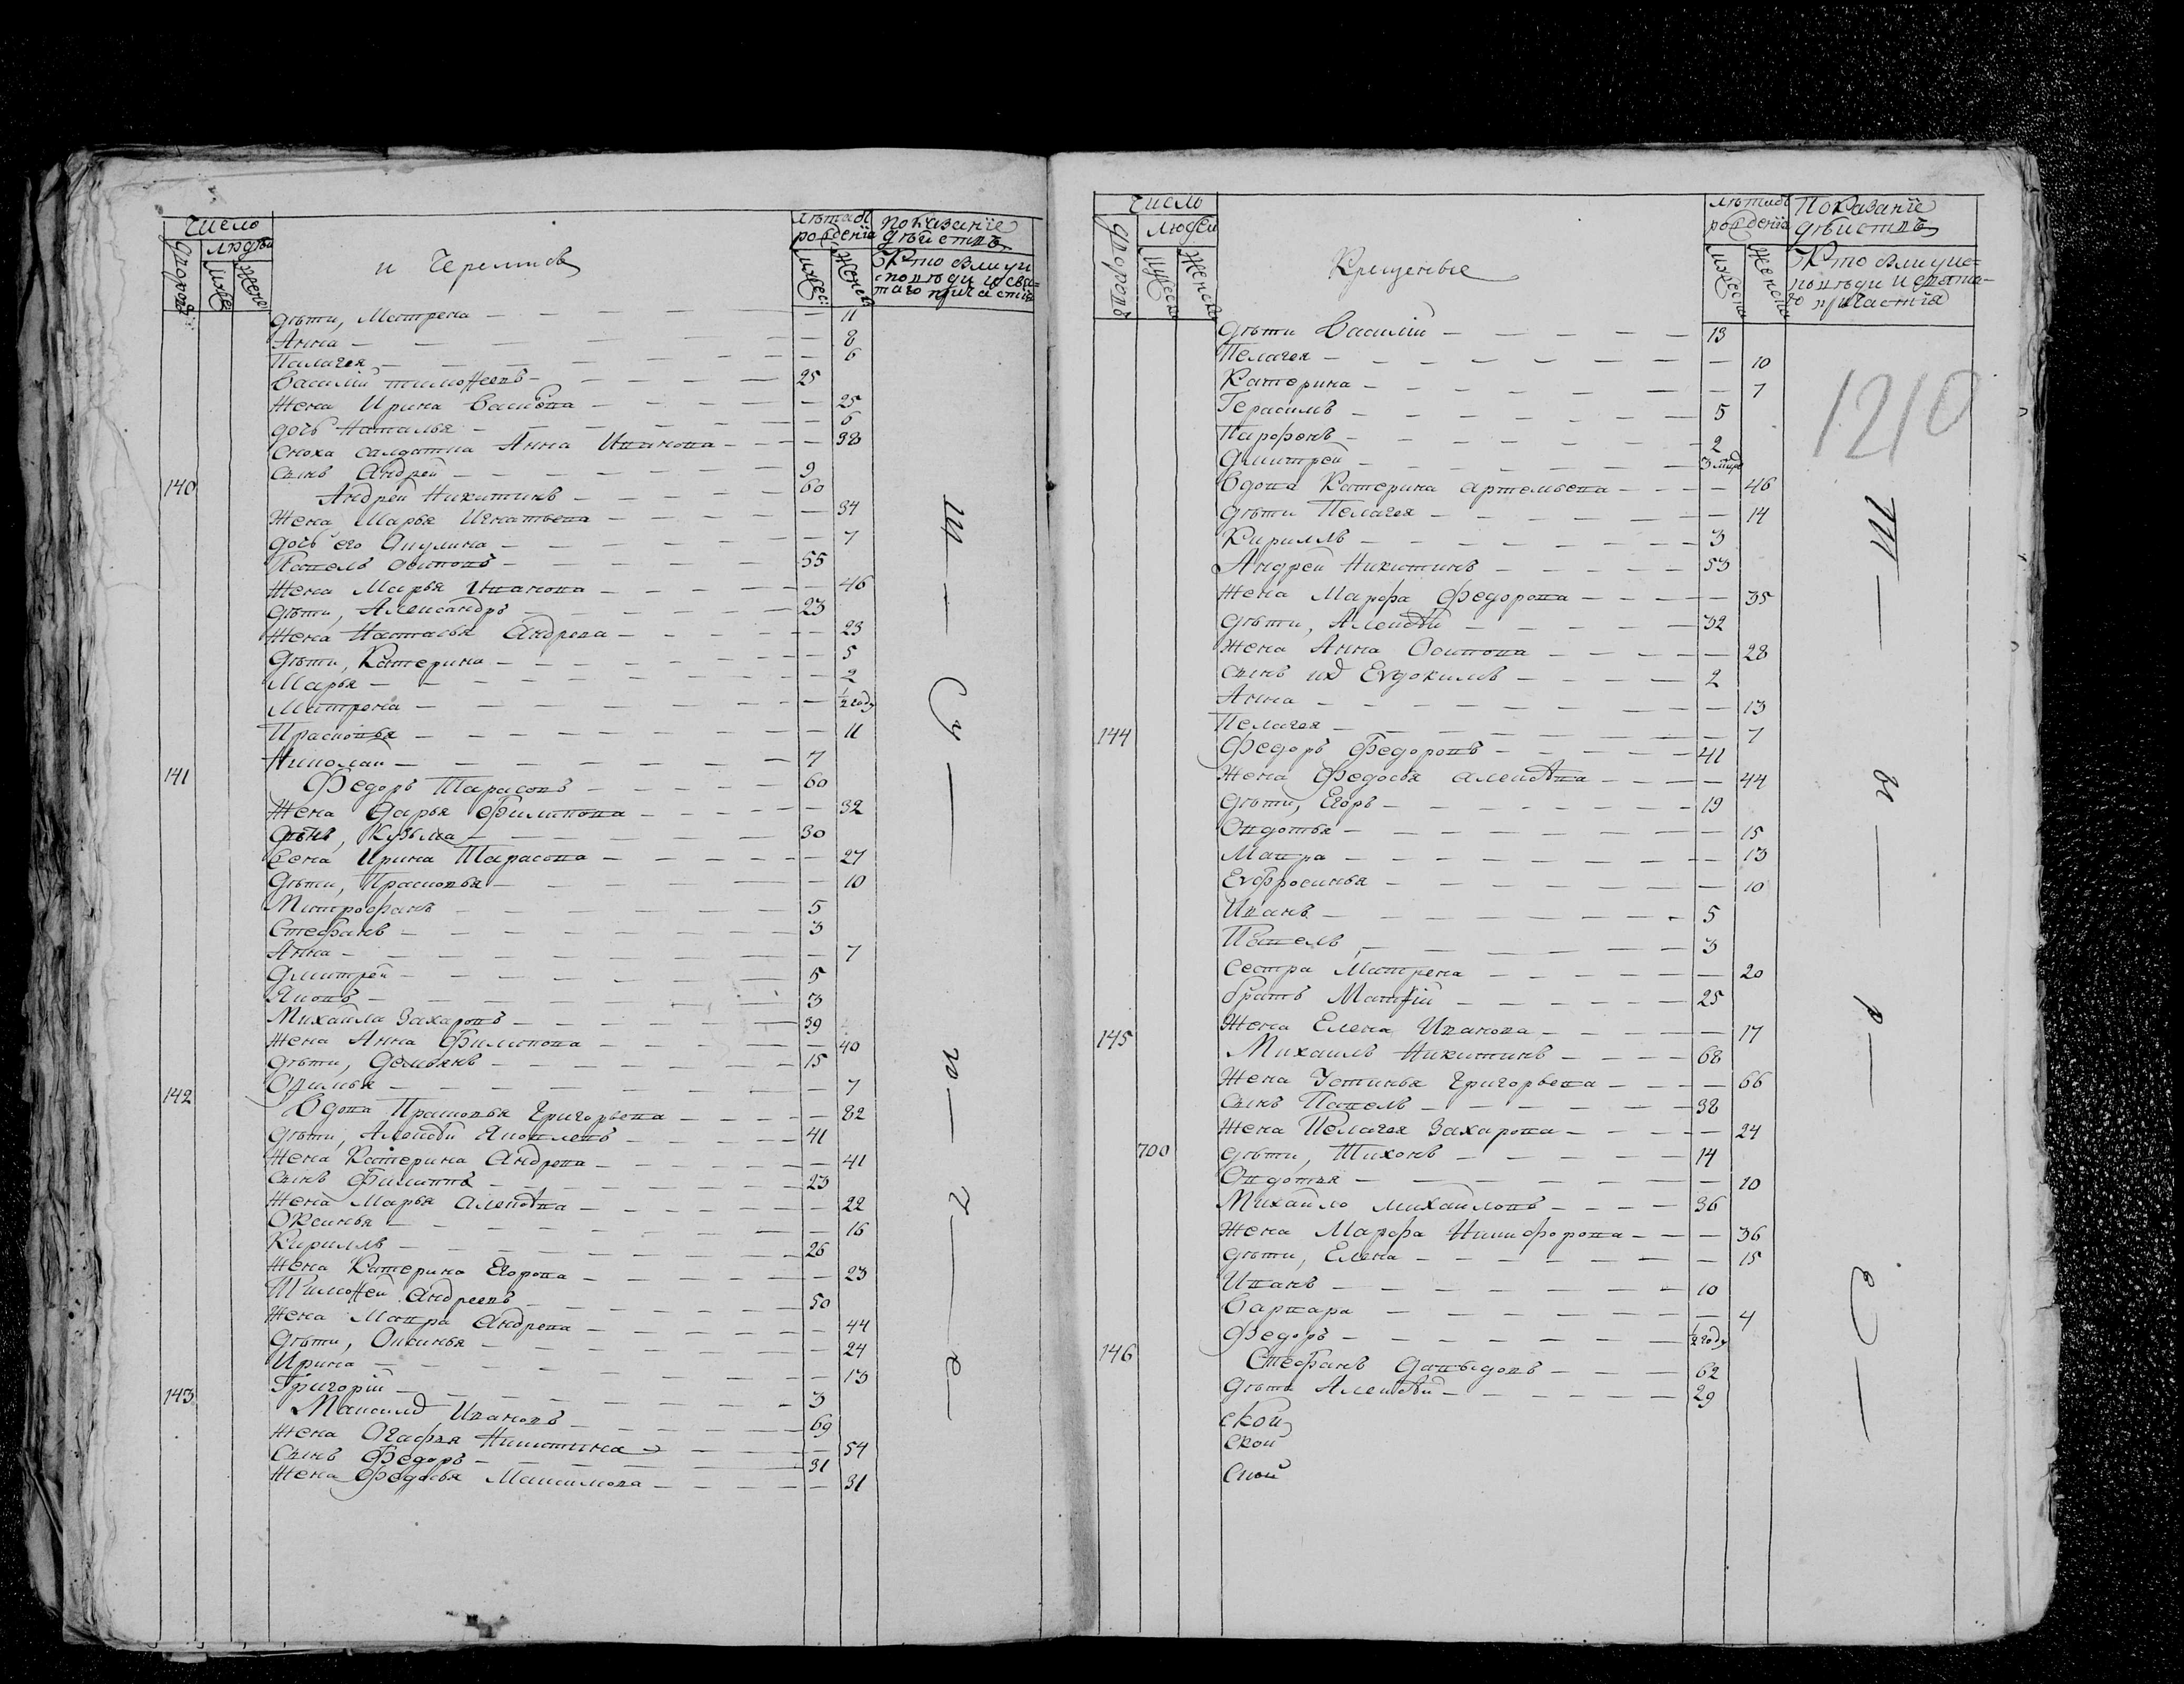 Число
людей
Дворовъ
Мужес
Женс
и Черемисъ
Лѣта ѿ рожденїя
Мужес:
Женск:
Показанїе дѣйствъ
Кто былъ у исповѣди и святаго причастїя
дѣти, Матрена — 11
Анна — 8
Палагея — 6
Василїй тимоѳеевъ — 25
жена Ирина Васильева — 25
дочь Наталья — 6
Сноха салдатка Анна Иванова — 38
сынъ Андрей — 9
140 Андрей Никитинъ — 60
жена Марья Игнатьева — 34
дочь его Акулина — 7
Павелъ осиповъ — 55
жена Марья Иванова — 46
дѣти, Александръ — 23
жена Настасья Андрева — 23
дѣти, Катерина — 5
Марья — 2
Матрена — ½ году
Прасковья — 11
Николай — 7
141 Федоръ Тарасовъ — 60
жена Дарья Филипова — 32
Кузьма — 30
жена Ирина Тарасова — 27
дѣти, Прасковья — 10
Митрофанъ — 5
Стефанъ — 3
Анна — 7
Дмитрей — 5
Яковъ — 3
Михайла Захаровъ — 39
жена Анна Филипова — 40
дѣти, Демьянъ — 15
7
142 Вдова Прасковья Григорьева — 82
дѣти, Алексѣй Яковлевъ — 41
жена Катерина Андрева — 41
сынъ Филиппъ — 23
жена Марья алексѣва — 22
Оксинья — 16
Кириллъ — 26
жена Катерина Егорова — 23
Тимоѳей Андреевъ — 50
жена Мавра Андрева — 44
дѣти, Оксинья — 24
Ирина — 13
Григорїй — 3
143 Максимъ Ивановъ — 69
жена Огафья Никитина — 54
сынъ Федоръ — 31
жена Федосья Максимова — 31
Число
людей
Дворовъ
Мужеск
Женска
Крещеные
Лѣта ѿ рожденїя
Мужеска
Женска
Показанїе дѣйствъ
Кто былъ у исповѣди и святаго причастїя
1210
дѣти Василїй — 13
Пелагея — 10
Катерина — 7
Герасимъ — 5
Парфенъ — 2
Дмитрей — 3
Вдова Катерина артемьева — 46
дѣти Пелагея — 14
Кириллъ — 3
Андрей Никитинъ — 53
жена Марфа Федорова — 35
дѣти, Алексѣй — 32
жена Анна Осипова — 28
сынъ их Еѵдокимъ — 2
Анна — 13
Пелагея — 7
144 Федоръ Федоровъ — 41
жена Федосья алексѣва — 44
дѣти, Егоръ — 19
Овдотья — 15
Мавра — 13
Еѵфросинья — 10
Иванъ — 5
Павелъ — 3
сестра Матрена — 20
братъ Матѳїй — 25
жена Елена Иванова — 17
145 Михаилъ Никитинъ — 68
жена Устинья Григорьева — 66
сынъ Павелъ — 38
жена Пелагея Захарова — 24
700 дѣти, Тихонъ — 14
Овдотья — 10
Михайло михайловъ — 36
жена Марфа Никифорова — 36
дѣти, Елена — 15
Иванъ — 10
Варвара — 4
Федоръ — ½ году
146 Стефанъ Давыдовъ — 62
дѣти Алексѣй — 29
ской
ской
ской